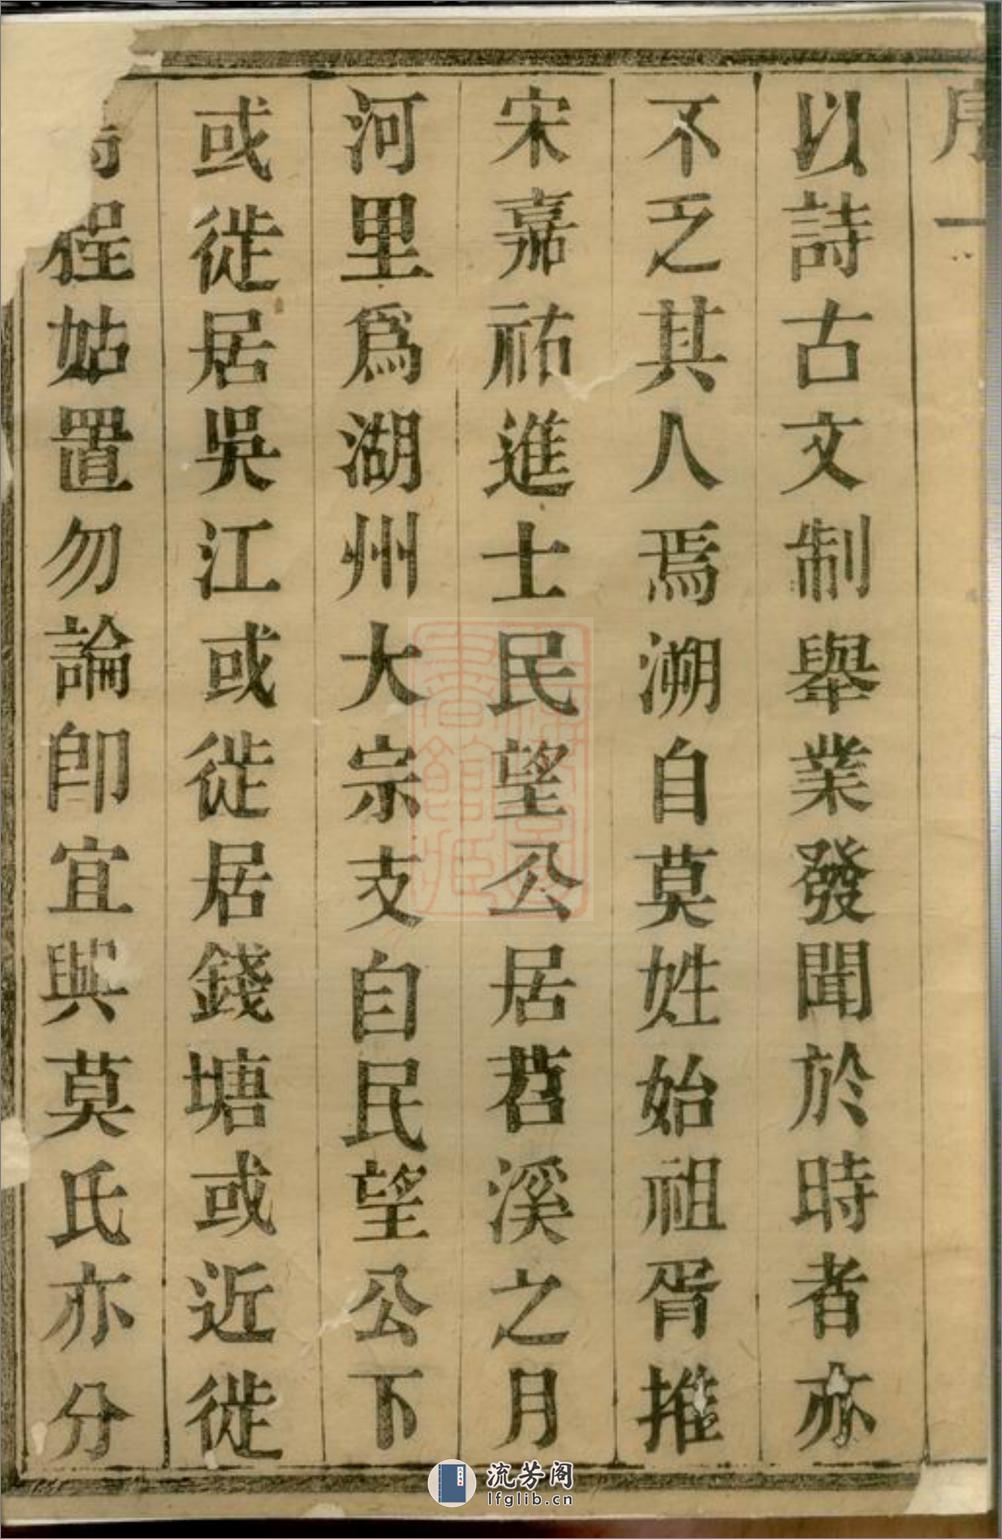 序一
以詩古文制舉業發聞於時者亦
不乏其人焉溯自莫姓始祖胥推
宋嘉祐進士民望公居苕溪之月
河里爲湖州大宗支自民望公下
或徙居吳江或徙居錢塘或近徙
程姑置勿論卽宜興莫氏亦分
流芳阁
lfglib.cn